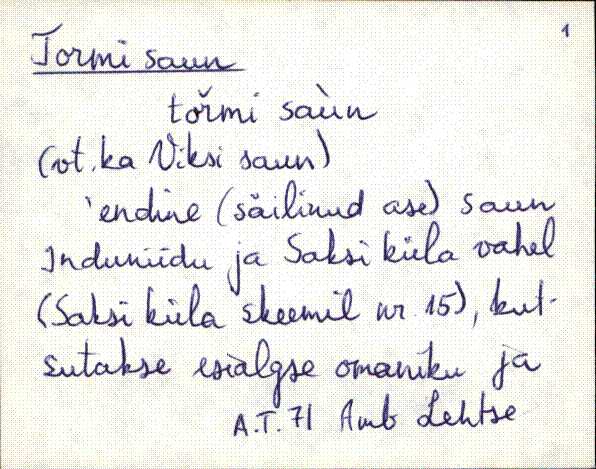 1
Tormi saun
tořmi saùn
(vt. ka Viksi saun)
'endine (säilinud ase) saun
Induniidu ja Saksi küla vahel
(Saksi küla skeemil nr. 15), kut-
sutakse esialgse omaniku ja
A.T. 71 Amb Lehtse